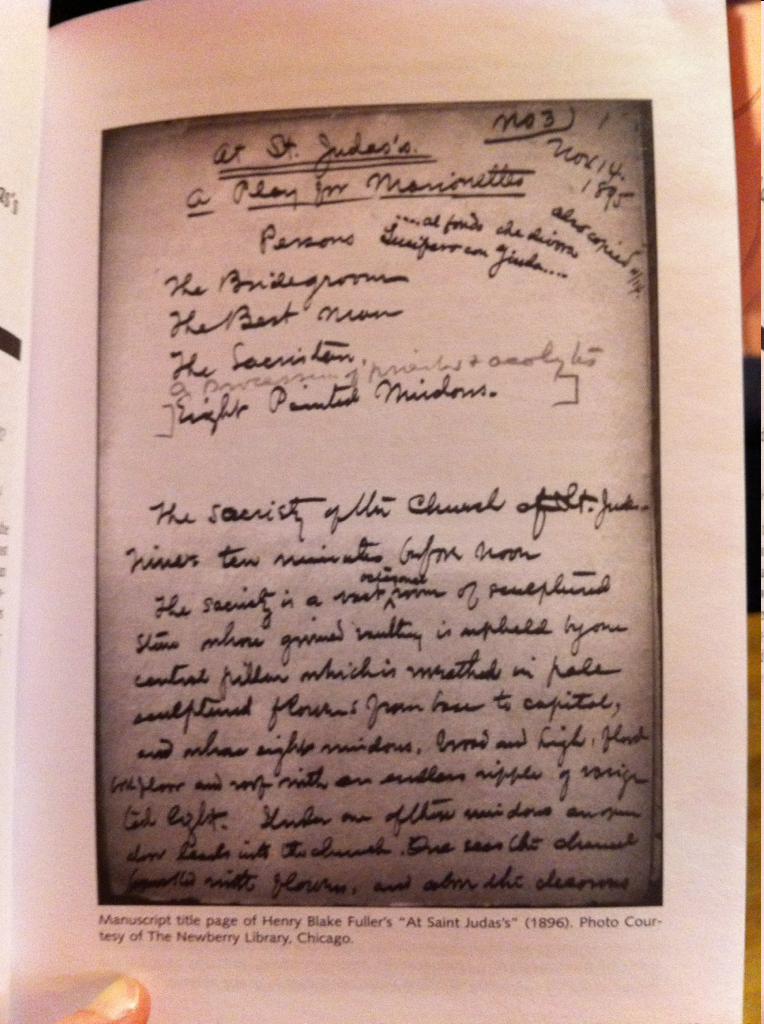 No 3)
At St. Judas's.
Nov 14.
1895
A Play for Marionettes
also copied 11/14.
Persons
....al fondo che divora
Lucifero con Giuda....
The Bridegroom
The Best Man
The Sacristan.
A procession of priests & acolytes
[Eight Painted Windows.]
The Sacristy of the Church of St. Judas.
Time: ten minutes before noon
The sacristy is a vast octagonal room of sculptured
stone whose groined vaulting is upheld by one
central pillar which is wreathed in pale
sculptured flowers from base to capital,
and whose eight windows, broad and high, flood
both floor and roof with an endless ripple of varie
ted light. Under one of these windows an open
door leads into the church. One sees the chancel
with flowers, and above the decorous
Manuscript title page of Henry Blake Fuller's "At Saint Judas's" (1896). Photo Cour-
tesy of The Newberry Library, Chicago.